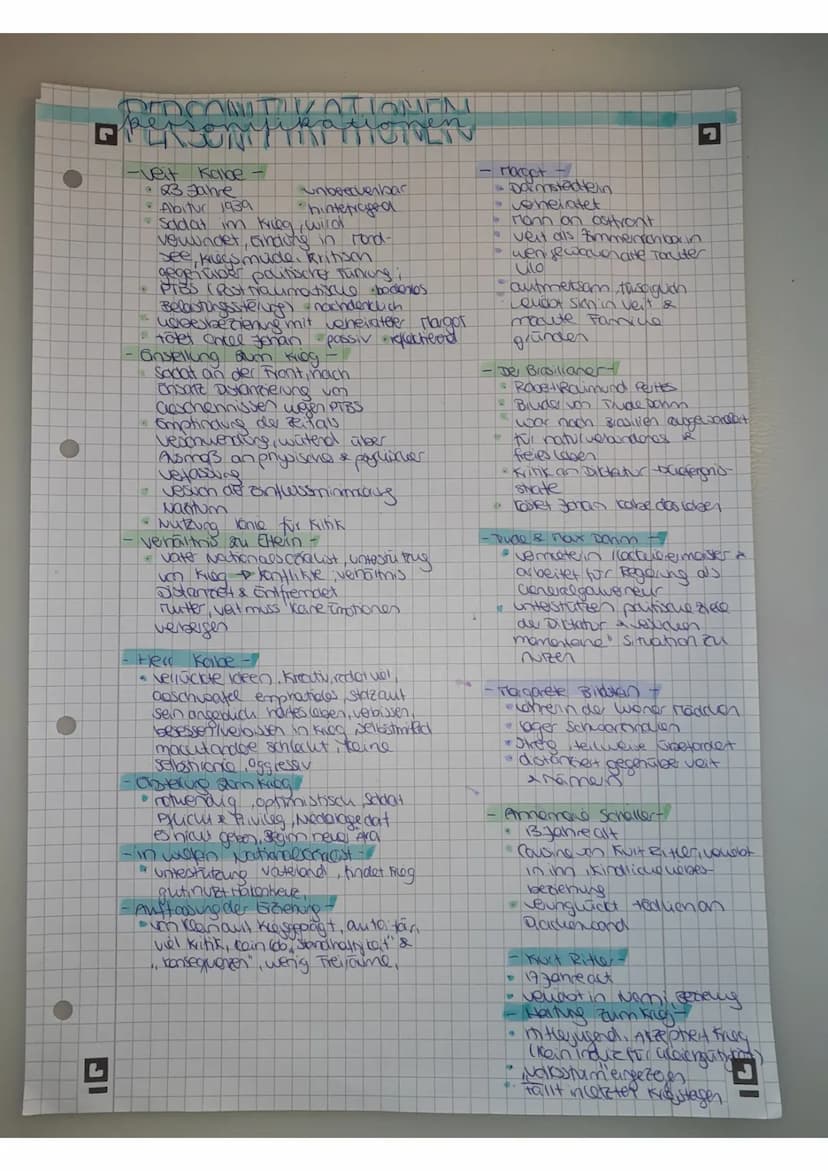 PERSONIFIKATIONEN
personifikationen
- Veit Kolbe -
• 23 Jahre
• unberechenbar
• Abitur 1939
• hinterfragend
• Soldat im Krieg, wird
verwundet,
see, kriegsmüde, kritisch
gegenüber politischer Führung;
• PTBS (Posttraumatische
• bodenlos
Belastungsstörung)
• nachdenklich
• Liebesbeziehung mit verheirateter Margot
• tötet Onkel Johan
• passiv
• reflektierend
- Einstellung zum Krieg -
• Soldat an der Front, nach
Einsatz Distanzierung von
Geschehnissen wegen PTBS
• Empfindung der Zeit als
Verschwendung, wütend über
Ausmaß an physischer & psychischer
Verfassung
• Versuch der
• Nutzung Ironie für Kritik
- Verhältnis zu Eltern -
• Vater Nationalsozialist, Unterstützung
von Krieg → Konflikte, Verhältnis
distanziert & entfremdet
Mutter, Veit muss keine Emotionen
verbergen
- Herr Kolbe -
• verrückte Ideen, kreativ, redet viel,
stolz auf
sein angeblich hartes Leben, verbissen,
besessen/verbissen in Krieg, Selbstmitleid
keine
Selbstironie, aggressiv
- Einstellung zum Krieg
• notwendig, optimistisch, Soldat
Pflicht & Privileg, Niederlage darf
es nicht geben, Beginn neuer Ära
- in wiefern Nationalsozialist -
• Unterstützung Vaterland, findet Krieg
gut
- Auffassung der Erziehung -
• von Klein auf Kriegsgeprägt, autoritär,
viel Kritik, kein Lob, "Standhaftigkeit" &
"Konsequenzen", wenig Freiräume,
- Margot -
• Darmstädterin
• verheiratet
• Mann an Ostfront
• Veit als Zimmernachbar in
• wenige Wochen alte Tochter
Lilo
• aufmerksam,
• verliebt sich in Veit &
möchte Familie
gründen
- Der Brasilianer -
• Robert Raimund Perttes
• Bruder von Trude Dohm
• war nach Brasilien ausgewandert
• für naturverbundenes &
freies Leben
• Kritik an Diktatur → Gefängnis-
strafe
• rettet Johan Kolbe das Leben
- Trude & Max Dohm -
• Vermieterin, Lackierermeister &
arbeitet für Regierung als
Generalgouverneur
• unterstützen politische Ziele
der Diktatur & versuchen
momentane Situation zu
nutzen
- Margarete Bildstein -
• Lehrerin der Wiener Mädchen
• Lager Schwarzindien
• streng, teilweise überfordert
• distanziert gegenüber Veit
& Männern
- Annemarie Schaller -
• 13 Jahre alt
• Cousine von Kurt Ritler, verliebt
in ihn, kindliche Liebes-
beziehung
• verunglückt tödlich an
Drachenwand
- Kurt Ritler -
• 17 Jahre alt
• verliebt in Nanni, Beziehung
- Haltung zum Krieg -
• Hitlerjugend, Akzeptiert Krieg
(kein Indiz für Gleichgültigkeit)
• Volkssturm eingezogen
• fällt in letzten Kriegstagen